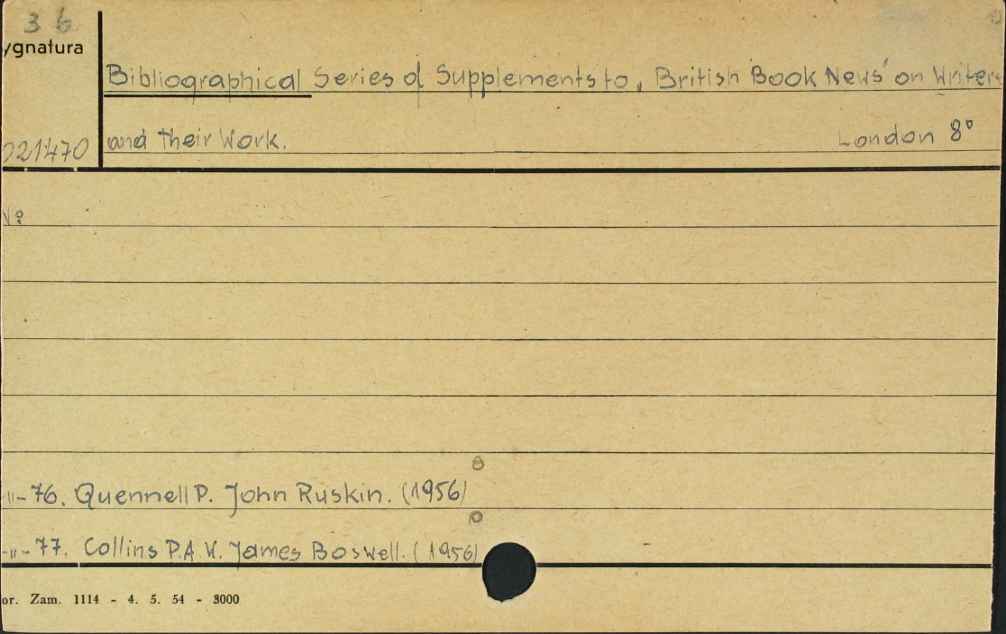 3 6
ygnatura
Bibliographical Series of Supplements to, British Book News' on Writers
and their Work. London 8°
021470
N°
-"- 76. Quennell P. John Ruskin. (1956)
-"- 77. Collins P.A.W. James Boswell. (1956)
or. Zam. 1114 - 4. 5. 54 - 3000